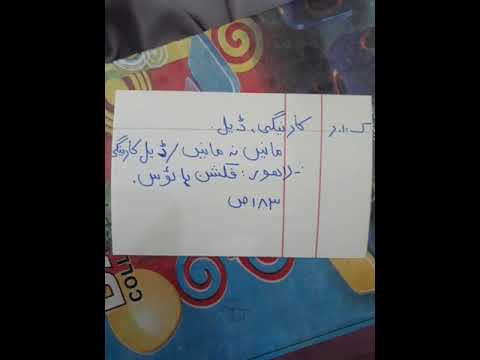 کارنیگی، ڈیل.
مانیں نہ مانیں / ڈیل کارنیگی
ـ لاهور: فکشن ہاؤس.
۱۸۳ص
COLL